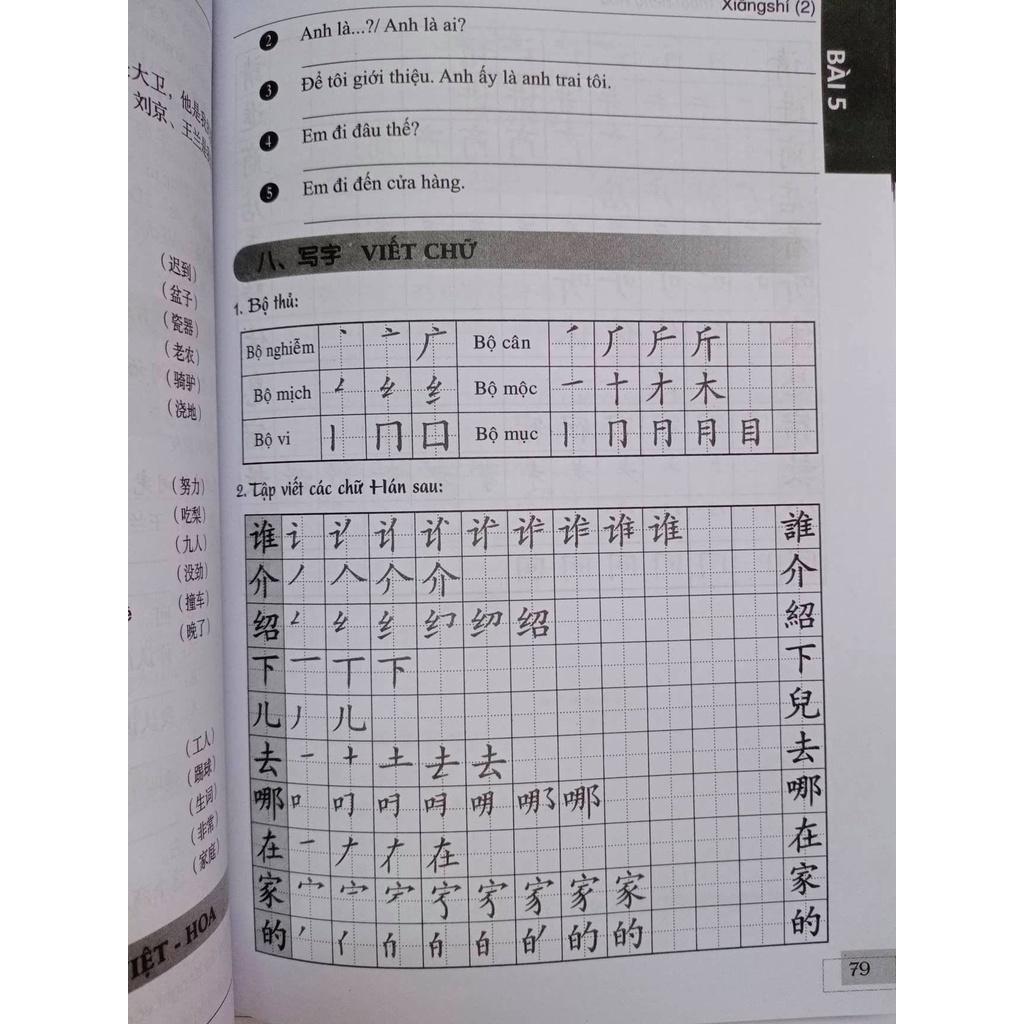 Xiāngshí (2)
BÀI 5
2 Anh là...?/ Anh là ai?
3 Để tôi giới thiệu. Anh ấy là anh trai tôi.
4 Em đi đâu thế?
5 Em đi đến cửa hàng.
八、写字 VIẾT CHỮ
1. Bộ thủ:
Bộ nghiễm 丶 亠 广 Bộ cân 斤
Bộ mịch 纟 Bộ mộc 一 十 才 木
Bộ vi 丨 冂 口 Bộ mục 丨 冂 月 目
2. Tập viết các chữ Hán sau:
谁 讠 谁 誰
介 丿 人 介 介
绍 纟 绍 紹
下 一 丅 下 下
儿 丿 儿 兒
去 一 十 土 去 去 去
哪 口 叨 哪 哪
在 一 ナ 才 在 在
家 宀 家 家
的 丿 亻 白 的 的 的
79
大卫，他是我
刘京、王兰是
(迟到)
(盆子)
(瓷器)
(老农)
(骑驴)
(浇地)
(努力)
(吃梨)
(九人)
(没劲)
(撞车)
(晚了)
(工人)
(踢球)
(生词)
(非常)
(家庭)
IỆT - HOA